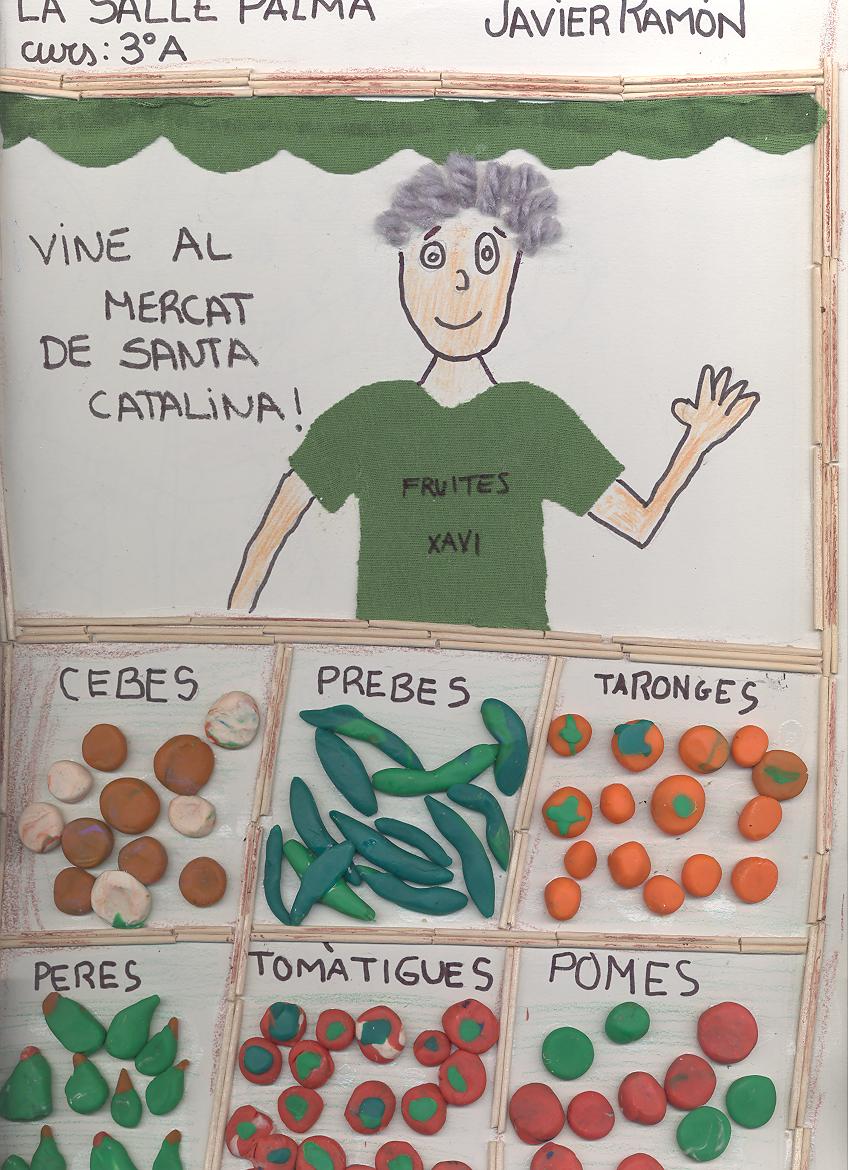 LA SALLE PALMA
JAVIER RAMÓN
curs: 3º A
VINE AL
MERCAT
DE SANTA
CATALINA!
FRUITES
XAVI
CEBES
PREBES
TARONGES
PERES
TOMÀTIGUES
POMES